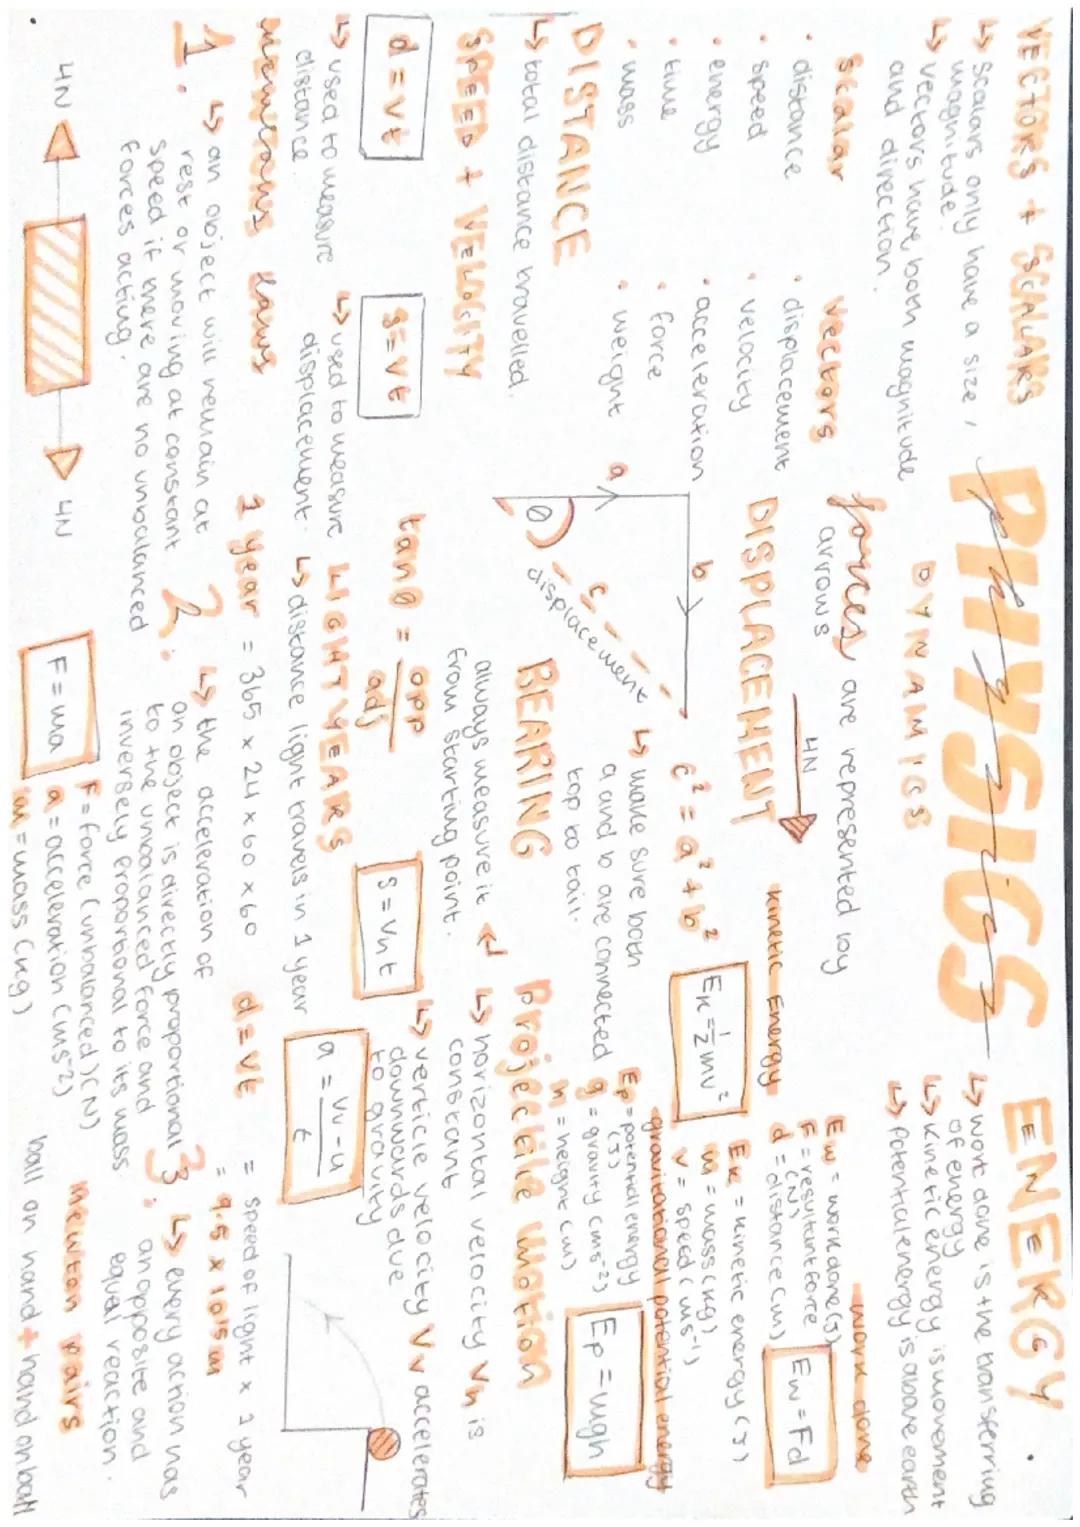 VECTORS + SCALARS
↳ scalars only have a size /
magnitude.
↳ vectors have both magnitude
and direction.
scalar
• distance
• speed
• energy
• time
• mass
vectors
• displacement
• velocity
• acceleration
• force
• weight
DISTANCE
↳ total distance travelled.
SPEED + VELOCITY
d = vt
↳ used to measure
distance
s = vt
↳ used to measure
displacement.
PHYSICS
physics
DYNAMICS
forces are represented by
arrows
4N
DISPLACEMENT
a
b
c
θ
displacement
c² = a² + b²
↳ make sure both
a and b are connected
top to tail.
BEARING
always measure it
from starting point.
tan θ = opp
adj
LIGHT YEARS
↳ distance light travels in 1 year
1 year = 365 × 24 × 60 × 60
d = vt
= speed of light × 1 year
= 9.5 × 10¹⁵ m
ENERGY
↳ work done is the transerring
of energy
↳ kinetic energy is movement
↳ Potential energy is above earth
work done
Ew = work done (J)
F = resultant force
(N)
d = distance (m)
Ew = Fd
kinetic Energy
Ek = ½mv²
Ek = kinetic energy (J)
m = mass (kg)
v = speed (ms⁻¹)
gravitational potential energy
Ep = potential energy
(J)
g = gravity (ms⁻²)
h = height (m)
Ep = mgh
Projectile motion
↳ horizontal verocity Vh is
constant
s = Vh t
↳ verticle velocity Vv accelerates
downwards due
to gravity
a = Vv - u
t
newtons laws
1. ↳ an object will remain at
rest or moving at constant
speed if there are no unbalanced
forces acting.
4N
4N
2. ↳ the acceleration of
an object is directly proportional
to the unbalanced force and
inversely proportional to its mass
F = ma
F = force (unbalanced) (N)
a = acceleration (ms⁻²)
m = mass (kg)
3. ↳ every action has
an opposite and
equal reaction.
newton pairs
ball on hand + hand on ball